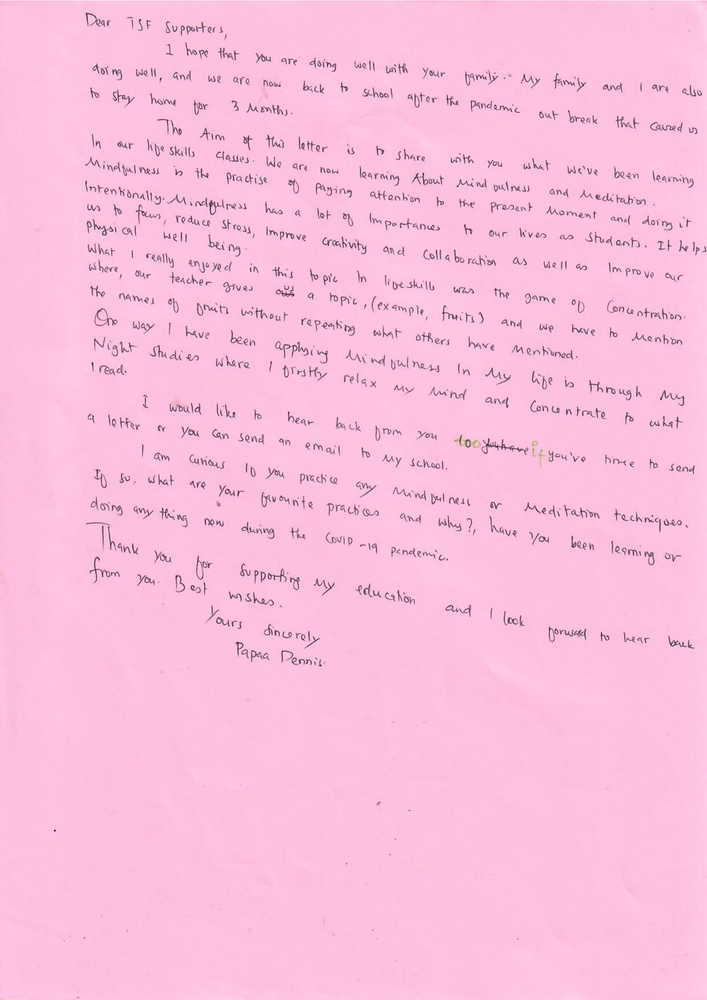 Dear TSF Supporters,
I hope that you are doing well with your family. My family and I are also
doing well, and we are now back to school after the pandemic out break that caused us
to stay home for 3 Months.
The Aim of this letter is to share with you what we've been learning
In our life skills classes. We are now learning About Mindfulness and Meditation.
Mindfulness is the practise of Paying attention to the present Moment and doing it
Intentionally. Mindfulness has a lot of Importances to our lives as Students. It helps
us to focus, reduce stress, Improve creativity and Collaboration as well as Improve our
physical well being.
What I really enjoyed in this topic In life skills was the game of Concentration.
where, our teacher gives us a topic, (example, fruits) and we have to Mention
the names of fruits without repeating what others have Mentioned.
One way I have been applying Mindfulness In My life is through My
Night studies where I firstly relax My Mind and Concentrate to what
I read.
I would like to hear back from you too you have if you've time to send
a letter or you can send an email to My school.
I am curious If you practice any Mindfulness or Meditation techniques.
If so, what are your favourite practices and why?, have you been learning or
doing any thing new during the COVID-19 pandemic.
Thank you for supporting My education and I look forward to hear back
from you. Best wishes.
Yours sincerely
Papaa Dennis.